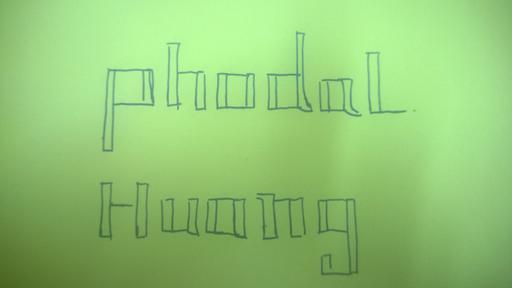 phodal
Huang